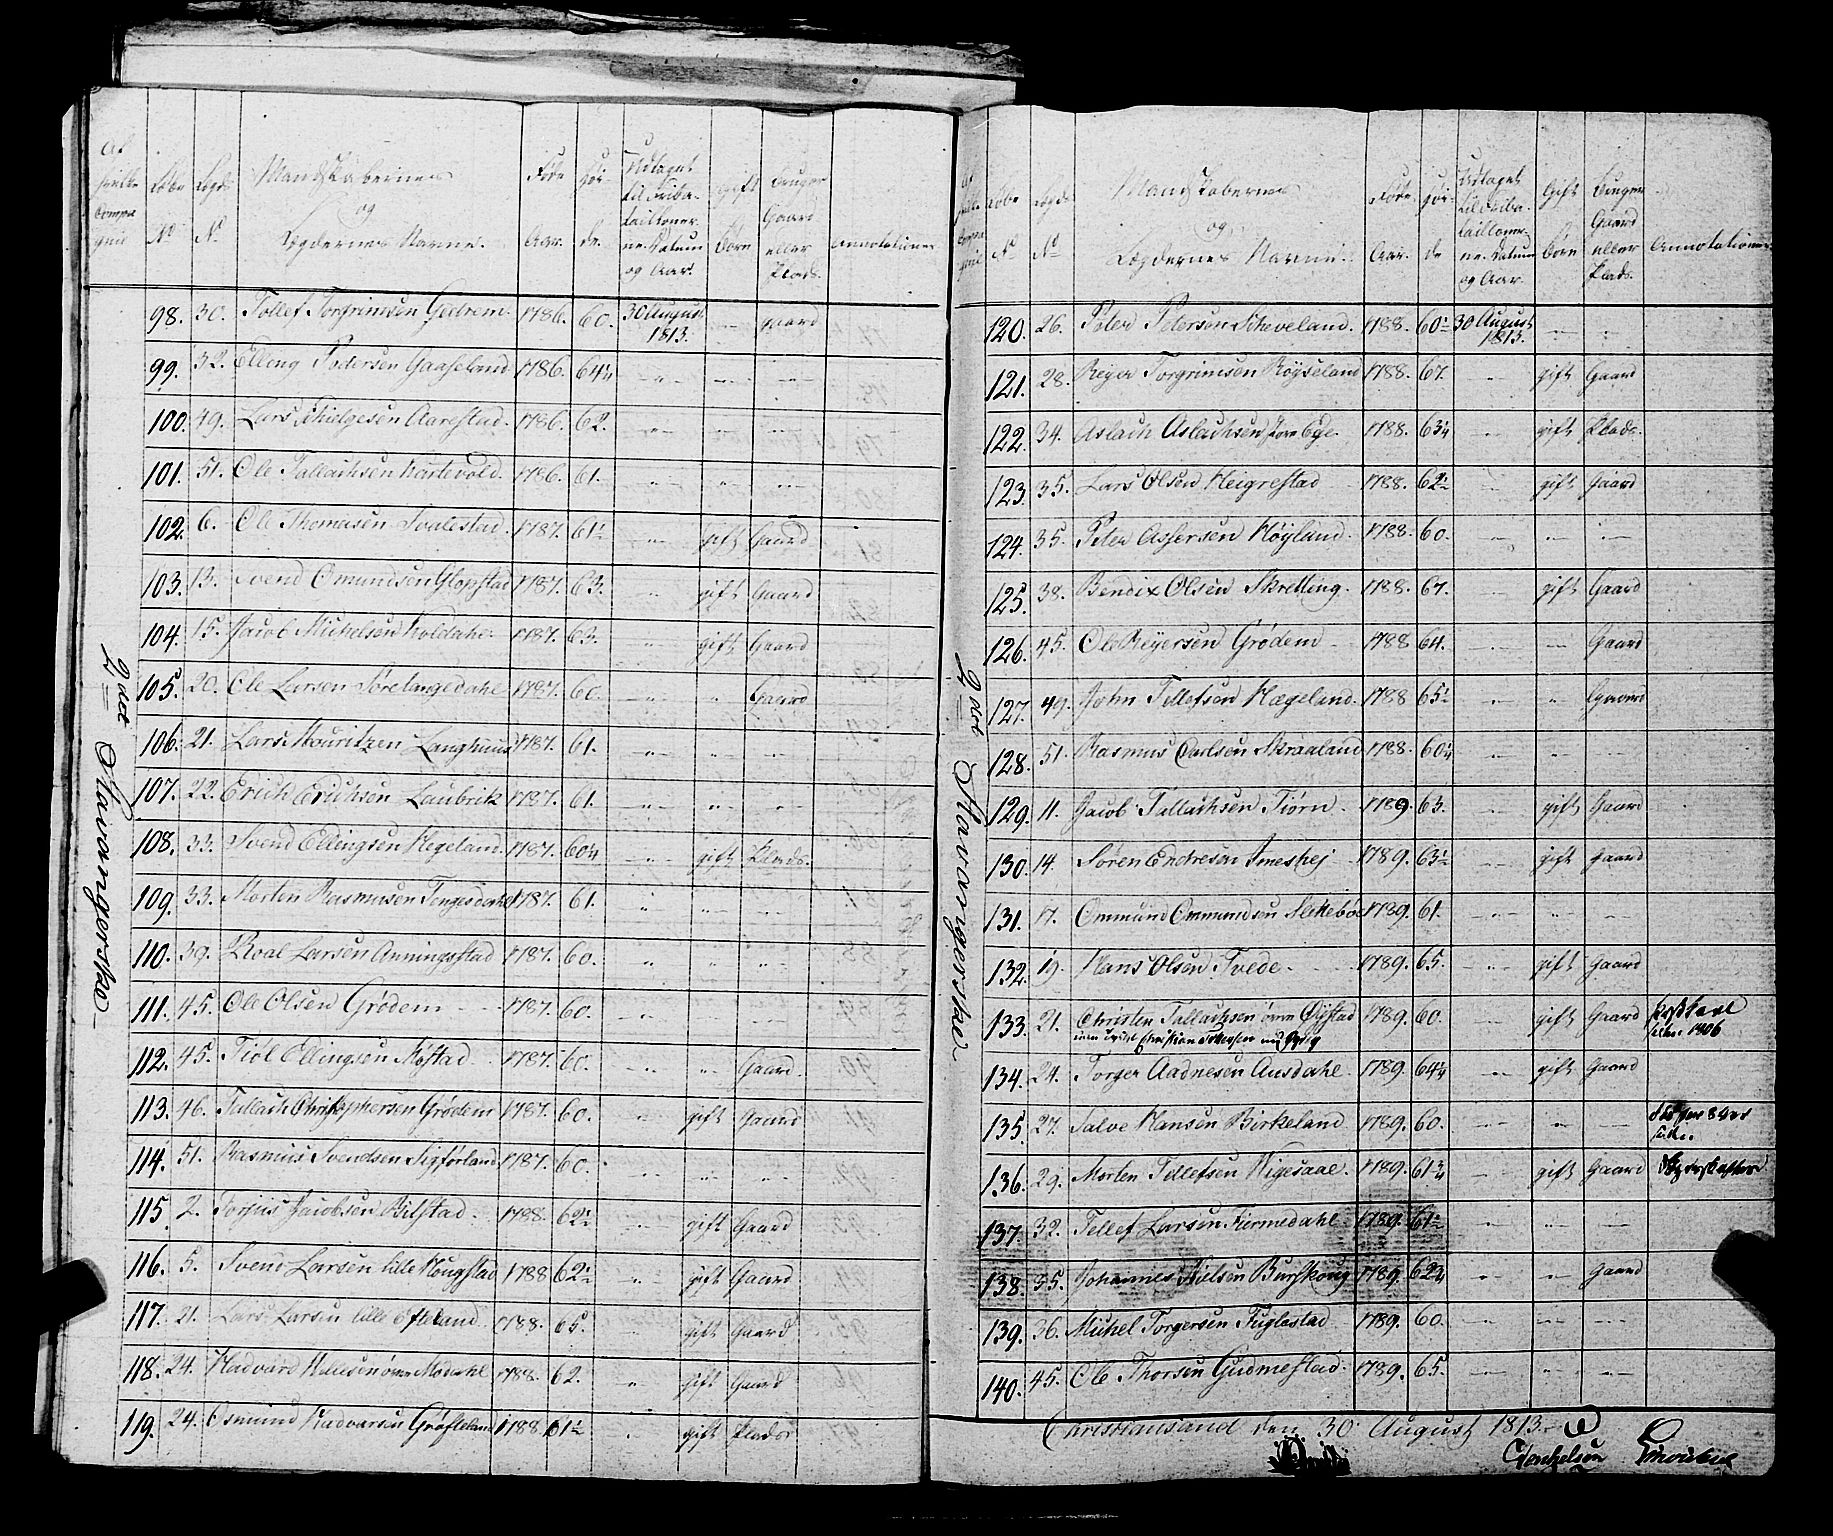 Af hvilke Compagnie | Løbe No | Lægds No | Mandskabernes og Lægdernes Navne. | Føde Aar. | Høide. | Udtaget til Friba-taillonerne. Datum og Aar. | Gift Børn | Bruger Gaard eller Plads. | Annotationer
2det Stavangerske
98. 30. Tollef Torgrimsen Gedrem. 1786. 60. 30 August 1813. gaard
99. 32. Elling Pedersen Gaaseland 1786. 64¼
100. 49. Lars Thielgesen Aarestad. 1786. 62.
101. 51. Ole Tallachsen Kartevold. 1786. 61.
102. 6. Ole Thomasen Svalestad. 1787. 61½ gift Gaard
103. 13. Svend Omundsen Glopstad 1787. 63. gift Gaard
104. 15. Jacob Michelsen Koldahl. 1787. 63. gift Gaard
105. 20. Ole Larsen Søre Langedahl 1787. 60. Gaard
106. 21. Lars Mouritzen Langhuus 1787. 61.
107. 22. Erich Erichsen Laubrik 1787. 61.
108. 33. Svend Ellingsen Hegeland 1787. 60¼ gift Plads.
109. 33. Morten Rasmusen Tengesdahl 1787. 61.
110. 39. Roal Larsen Anningstad 1787. 60.
111. 45. Ole Olsen Grødem 1787. 60.
112. 45. Tiøl Ellingsen Møstad 1787. 60. Gaard.
113. 46. Tallach Christophersen Grødem 1787. 60. gift Gaard
114. 51. Rasmus Svendsen Sigførland 1787. 60.
115. 2. Torjus Jacobsen Bilstad. 1788. 62½ gift Gaard
116. 5. Svend Larsen lille Hougstad 1788 62½ gift Gaard
117. 21. Lars Larsen lille Efteland 1788. 65. gift Gaard
118. 24. Hadvard Nilssen øvre Modahl 1788. 62. gift Gaard
119. 24. Osmund Hadvarsen Grøfteland 1788 61½ gift Plads
Løbe No | Lægds No | Mandskabernes og Lægdernes Navne. | Føde Aar. | Høide | Udtaget til Friba-taillonerne. Datum og Aar. | Gift Børn | Bruger Gaard eller Plads. | Annotationer
2det Stavangerske
120. 26. Peter Petersen Skeveland. 1788. 60½ 30 August 1813.
121. 28. Reyer Torgrimsen Røyseland 1788. 67. gift Gaard
122. 34. Aslach Aslachsen store Ege 1788. 63¼ gift Plads.
123. 35. Lars Olsen Heigrestad 1788. 62½ gift Gaard
124. 35. Peter Assersen Høyland. 1788. 60.
125. 38. Bendix Olsen Skretting. 1788. 67. gift Gaard
126. 45. Ole Reyersen Grødem 1788 64. Gaard
127. 49. John Tellefsen Hægeland. 1788 65½ Gaard
128. 51. Rasmus Carlsen Skraaland 1788. 60¼
129. 11. Jacob Tallachsen Tiørn. 1789. 63. gift Gaard
130. 14. Søren Endresen Ameshej 1789. 63½ gift Gaard
131. 17. Ommund Ommundsen Slekeboe 1789. 61.
132. 19. Hans Olsen Tvede. 1789. 65. gift Gaard
133. 21. Christen Tallachsen øvre Øystad 1789. 60. gift Gaard
134. 24. Torger Aadnesen Ausdahl. 1789. 64¼ gift Gaard
135. 27. Salve Hansen Birkeland. 1789. 60.
136. 29. Morten Tellefsen Higesaae. 1789. 61¾ gift Gaard
137. 32. Tellef Larsen Furmedahl. 1789. 61½
138. 35. Johannes Nielsen Burskoug 1789. 62¾ Gaard
139. 36. Michel Torgersen Fuglestad 1789. 60.
140. 45. Ole Thorsen Gudmestad. 1789. 65.
Christiansand den 30 August 1813.